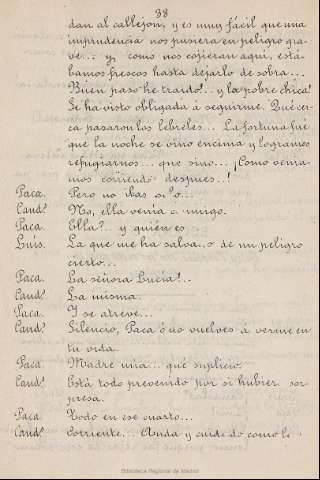 38
dan al callejon, y es muy fácil que una
imprudencia nos pusiera en peligro gra-
ve... y, como nos cojieran aquí, está-
bamos frescos hasta dejarlo de sobra...
Buen paso he traido!.. y la pobre chica!
Se ha visto obligada á seguirme. Qué cer-
ca pasaron los lebreles... La fortuna fué
que la noche se vino encima y logramos
refugiarnos... que sino... ¡Como venía-
mos corriendo despues..!
Paca. Pero no ibas solo...
Cand.º No, ella venia conmigo.
Paca Ella?.. y quién es
Luis. La que me ha salvado de un peligro
cierto...
Paca. La señora Lucía!..
Cand.º La misma.
Paca. Y se atreve...
Cand.º Silencio, Paca ó no vuelves á verme en
tu vida.
Paca. Madre mia... qué suplicio.
Cand.º Está todo prevenido por si hubier sor-
presa.
Paca Todo en ese cuarto...
Cand.º Corriente... Anda y cuidado como le
Biblioteca Regional de Madrid